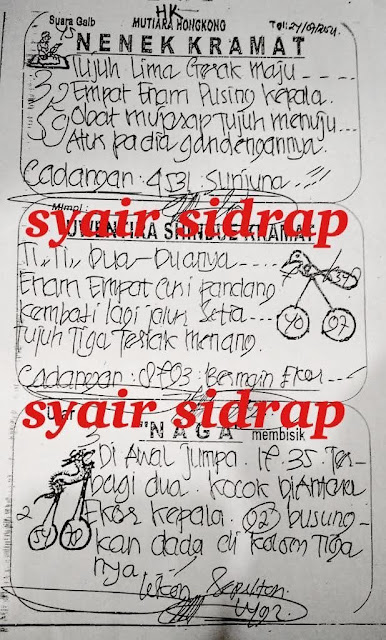 HK
Suara Gaib
MUTIARA HONGKONG
NENEK KRAMAT
Tujuh Lima Gerak maju
Empat Enam Pusing Kepala.
Obat mujarap Tujuh menuju
Atuk pa dia gandengannya.
Cadangan : 4531
syair sidrap
Mimpi :
KRAMAT
Ti, Ti, Dua-Duanya
Enam Empat Cuni pandang
Kembali lagi jalur Setia
Tujuh Tiga Terlak menang.
40 07
Cadangan : 8703 Bermain Ekor
syair sidrap
"NAGA" membisik
Di Awal Jumpa. IP. 35 Ter
bagi dua. Kocok diAntara
2 Ekor Kepala. 023 busung
kan dada di Kolom Tiga
nya